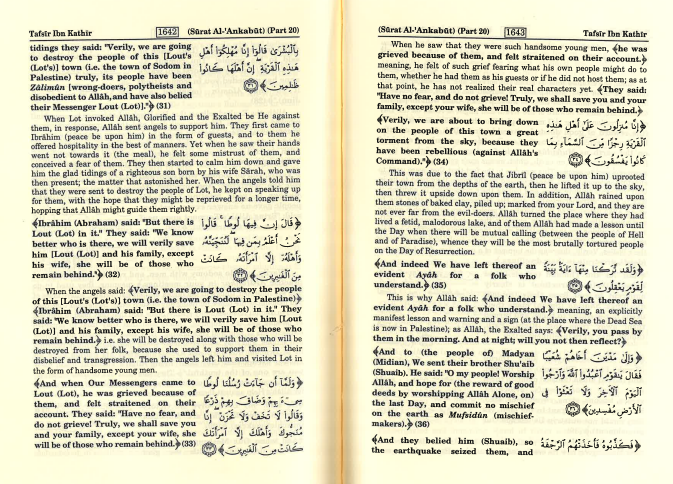 Tafsîr Ibn Kathîr 1642 (Sûrat Al-'Ankabût) (Part 20)
tidings they said: "Verily, we are going
to destroy the people of this [Lout's
(Lot's)] town (i.e. the town of Sodom in
Palestine) truly, its people have been
Zâlimûn [wrong-doers, polytheists and
disobedient to Allâh, and have also belied
their Messenger Lout (Lot)]."﴿ (31)
بِٱلْبُشْرَىٰ قَالُوٓا۟ إِنَّا مُهْلِكُوٓا۟ أَهْلِ
هَـٰذِهِ ٱلْقَرْيَةِ إِنَّ أَهْلَهَا كَانُوا۟
ظَـٰلِمِينَ﴾
When Lot invoked Allâh, Glorified and the Exalted be He against
them, in response, Allâh sent angels to support him. They first came to
Ibrâhîm (peace be upon him) in the form of guests, and to them he
offered hospitality in the best of manners. Yet when he saw their hands
went not towards it (the meal), he felt some mistrust of them, and
conceived a fear of them. They then started to calm him down and gave
him the glad tidings of a righteous son born by his wife Sârah, who was
then present; the matter that astonished her. When the angels told him
that they were sent to destroy the people of Lot, he kept on speaking up
for them, with the hope that they might be reprieved for a longer time,
hopping that Allâh might guide them rightly.
﴾Ibrâhîm (Abraham) said: "But there is
Lout (Lot) in it." They said: "We know
better who is there, we will verily save
him [Lout (Lot)] and his family, except
his wife, she will be of those who
remain behind."﴿ (32)
﴿قَالَ إِنَّ فِيهَا لُوطًا قَالُوا۟
نَحْنُ أَعْلَمُ بِمَن فِيهَا لَنُنَجِّيَنَّهُۥ
وَأَهْلَهُۥٓ إِلَّا ٱمْرَأَتَهُۥ كَانَتْ
مِنَ ٱلْغَـٰبِرِينَ﴾
When the angels said: ﴾Verily, we are going to destroy the people
of this [Lout's (Lot's)] town (i.e. the town of Sodom in Palestine)﴿
﴾Ibrâhîm (Abraham) said: "But there is Lout (Lot) in it." They
said: "We know better who is there, we will verily save him [Lout
(Lot)] and his family, except his wife, she will be of those who
remain behind.﴿ i.e. she will be destroyed along with those who will be
destroyed from her folk, because she used to support them in their
disbelief and transgression. Then the angels left him and visited Lot in
the form of handsome young men.
﴾And when Our Messengers came to
Lout (Lot), he was grieved because of
them, and felt straitened on their
account. They said: "Have no fear, and
do not grieve! Truly, we shall save you
and your family, except your wife, she
will be of those who remain behind.﴿ (33)
﴿وَلَمَّآ أَن جَآءَتْ رُسُلُنَا لُوطًا
سِىٓءَ بِهِمْ وَضَاقَ بِهِمْ ذَرْعًا
وَقَالُوا۟ لَا تَخَفْ وَلَا تَحْزَنْ إِنَّا
مُنَجُّوكَ وَأَهْلَكَ إِلَّا ٱمْرَأَتَكَ
كَانَتْ مِنَ ٱلْغَـٰبِرِينَ﴾
(Sûrat Al-'Ankabût) (Part 20) 1643 Tafsîr Ibn Kathîr
When he saw that they were such handsome young men, ﴾he was
grieved because of them, and felt straitened on their account.﴿
meaning, he felt of such grief fearing what his own people might do to
them, whether he had them as his guests or if he did not host them; as at
that point, he has not realized their real characters yet. ﴾They said:
"Have no fear, and do not grieve! Truly, we shall save you and your
family, except your wife, she will be of those who remain behind.﴿
﴾Verily, we are about to bring down
on the people of this town a great
torment from the sky, because they
have been rebellious (against Allâh's
Command)."﴿ (34)
﴿إِنَّا مُنزِلُونَ عَلَىٰٓ أَهْلِ هَـٰذِهِ
ٱلْقَرْيَةِ رِجْزًا مِّنَ ٱلسَّمَآءِ بِمَا
كَانُوا۟ يَفْسُقُونَ﴾
This was due to the fact that Jibrîl (peace be upon him) uprooted
their town from the depths of the earth, then he lifted it up to the sky,
then threw it upside down upon them. In addition, Allâh rained upon
them stones of baked clay, piled up; marked from your Lord, and they are
not ever far from the evil-doers. Allâh turned the place where they had
lived a fetid, malodorous lake, and of them Allâh had made a lesson until
the Day when there will be mutual calling (between the people of Hell
and of Paradise), whence they will be the most brutally tortured people
on the Day of Resurrection.
﴾And indeed We have left thereof an
evident Ayâh for a folk who
understand.﴿ (35)
﴿وَلَقَد تَّرَكْنَا مِنْهَآ ءَايَةًۢ بَيِّنَةً
لِّقَوْمٍ يَعْقِلُونَ﴾
This is why Allâh said: ﴾And indeed We have left thereof an
evident Ayâh for a folk who understand.﴿ meaning, an explicitly
manifest lesson and warning and a sign (at the place where the Dead Sea
is now in Palestine); as Allâh, the Exalted says: ﴾Verily, you pass by
them in the morning. And at night; will you not then reflect?﴿
﴾And to (the people of) Madyan
(Midian), We sent their brother Shu'aib
(Shuaib). He said: "O my people! Worship
Allâh, and hope for (the reward of good
deeds by worshipping Allâh Alone, on)
the last Day, and commit no mischief
on the earth as Mufsidûn (mischief-
makers).﴿ (36)
﴿وَإِلَىٰ مَدْيَنَ أَخَاهُمْ شُعَيْبًا
فَقَالَ يَـٰقَوْمِ ٱعْبُدُوا۟ ٱللَّهَ وَٱرْجُوا۟
ٱلْيَوْمَ ٱلْـَٔاخِرَ وَلَا تَعْثَوْا۟ فِى
ٱلْأَرْضِ مُفْسِدِينَ﴾
﴾And they belied him (Shuaib), so
the earthquake seized them, and
﴿فَكَذَّبُوهُ فَأَخَذَتْهُمُ ٱلرَّجْفَةُ